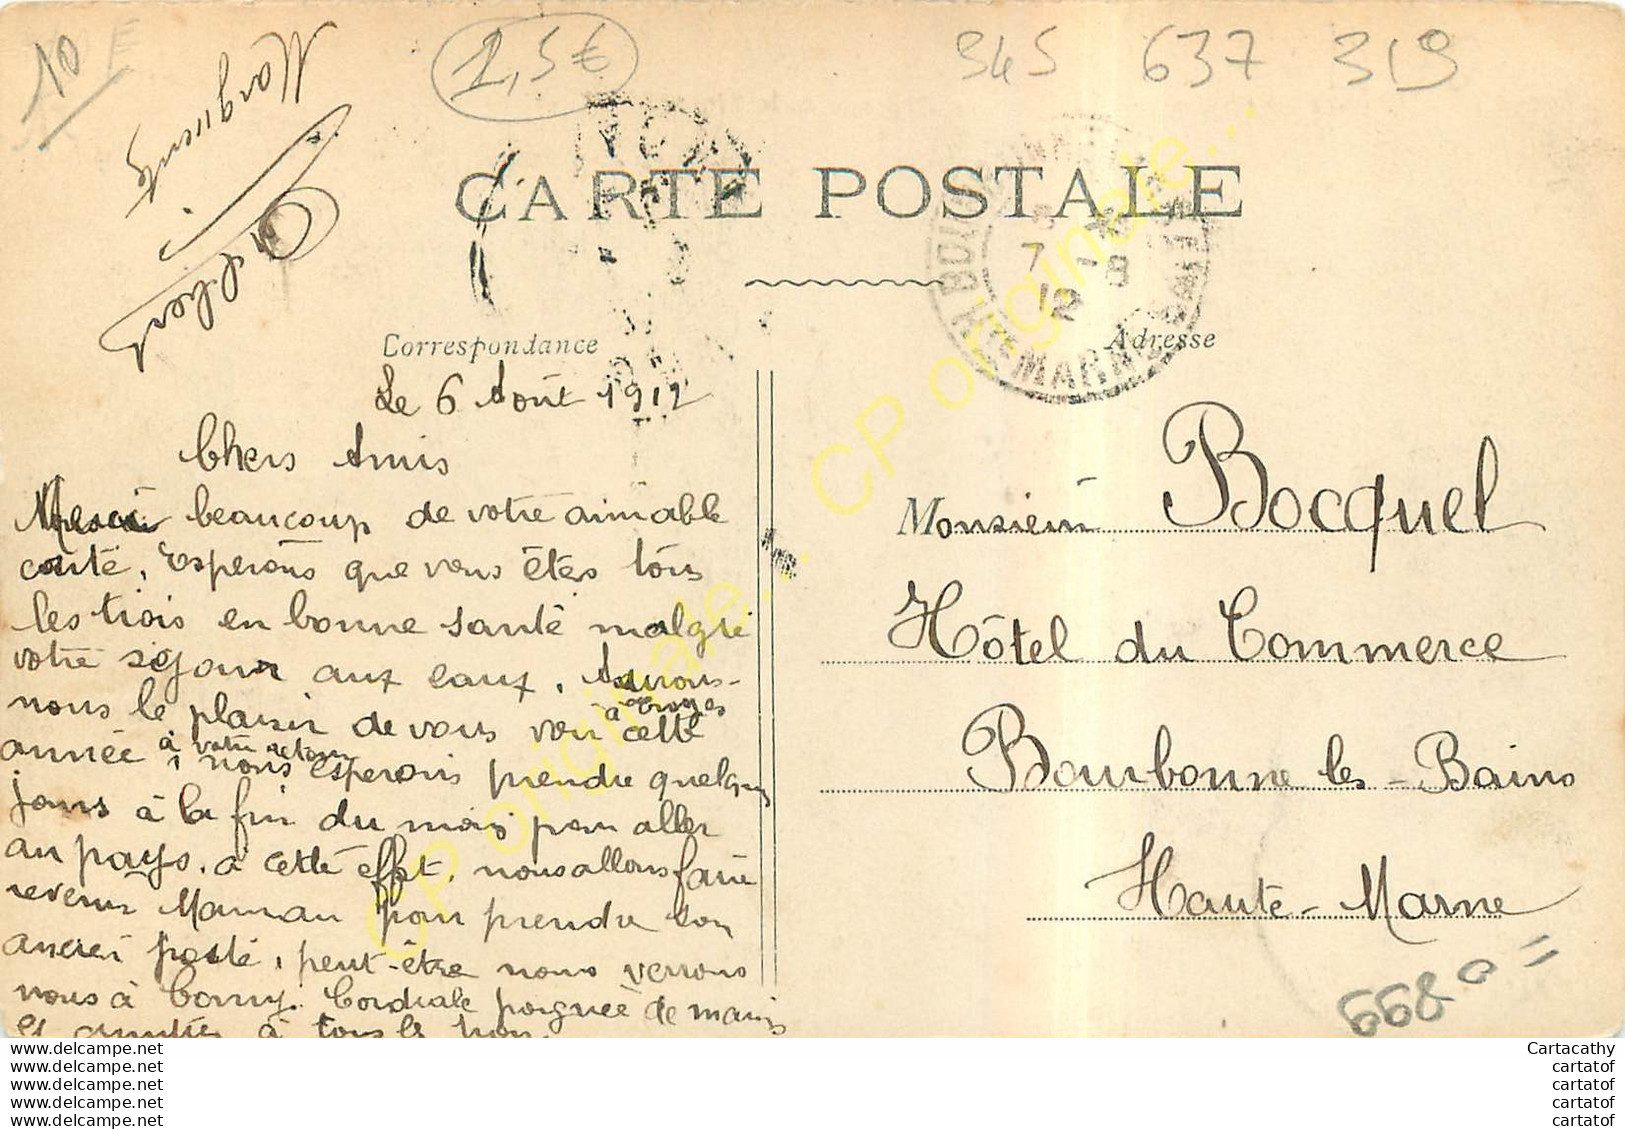 10 E
2,5 €
345 637 319
Marguerite
CARTE POSTALE
Correspondance
Adresse
7 - 8
12
HTE MARNE
Le 6 Août 1912
Chers Amis
Merci beaucoup de votre aimable
carte, Espérons que vous êtes tous
les trois en bonne santé malgré
votre séjour aux eaux. Aurons-
nous le plaisir de vous voir à Troyes cette
année à votre retour, nous espérons prendre quelques
jours à la fin du mois pour aller
au pays. à cette effet, nous allons faire
revenir Maman pour prendre son
ancien poste, peut-être nous verrons
nous à Cordiale poignée de mains
et amitiés à tous les trois.
Monsieur Bocquel
Hôtel du Commerce
Bourbonne les-Bains
Haute-Marne
668
CP originale...
CP originale...
CP originale...
www.delcampe.net
www.delcampe.net
www.delcampe.net
www.delcampe.net
www.delcampe.net
Cartacathy
cartatof
cartatof
cartatof
cartatof